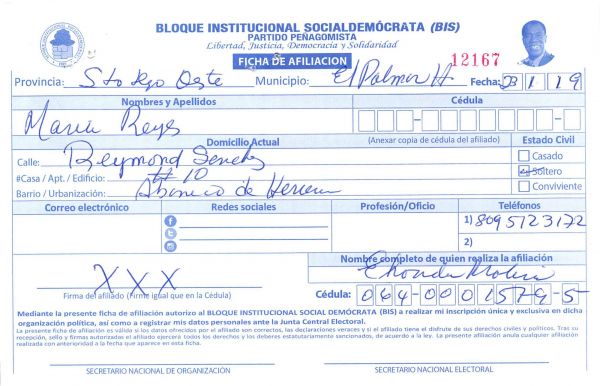 BLOQUE INSTITUCIONAL SOCIALDEMÓCRATA (BIS)
PARTIDO PEÑAGOMISTA
Libertad, Justicia, Democracia y Solidaridad
FICHA DE AFILIACION
12167
Provincia: Sto Dgo Oeste Municipio: El Palmar H Fecha: 23 1 19
Nombres y Apellidos Cédula
Maria Reyes
Domicilio Actual (Anexar copia de cédula del afiliado) Estado Civil
Calle: Reymond
Casado
#Casa / Apt. / Edificio: # 10 Soltero
Barrio / Urbanización: Abanico de Herrera Conviviente
Correo electrónico Redes sociales Profesión/Oficio Teléfonos
1) 8095723172
2)
Nombre completo de quien realiza la afiliación
X X X Molina
Firma del afiliado (Firme igual que en la Cédula) Cédula: 064-0001579-5
Mediante la presente ficha de afiliación autorizo al BLOQUE INSTITUCIONAL SOCIAL DEMÓCRATA (BIS) a realizar mi inscripción única y exclusiva en dicha
organización política, así como a registrar mis datos personales ante la Junta Central Electoral.
La presente ficha de afiliación es válida si los datos ofrecidos por el afiliado son correctos, las declaraciones veraces y si el afiliado tiene el disfrute de sus derechos civiles y políticos. Tras su
recepción, sello y firmas autorizadas el afiliado ejercerá todos los derechos y los deberes estatutariamente sancionados, de acuerdo a la ley. La presente afiliación anula cualquier afiliación
realizada con anterioridad a la fecha que aparece en esta ficha.
SECRETARIO NACIONAL DE ORGANIZACIÓN SECRETARIO NACIONAL ELECTORAL